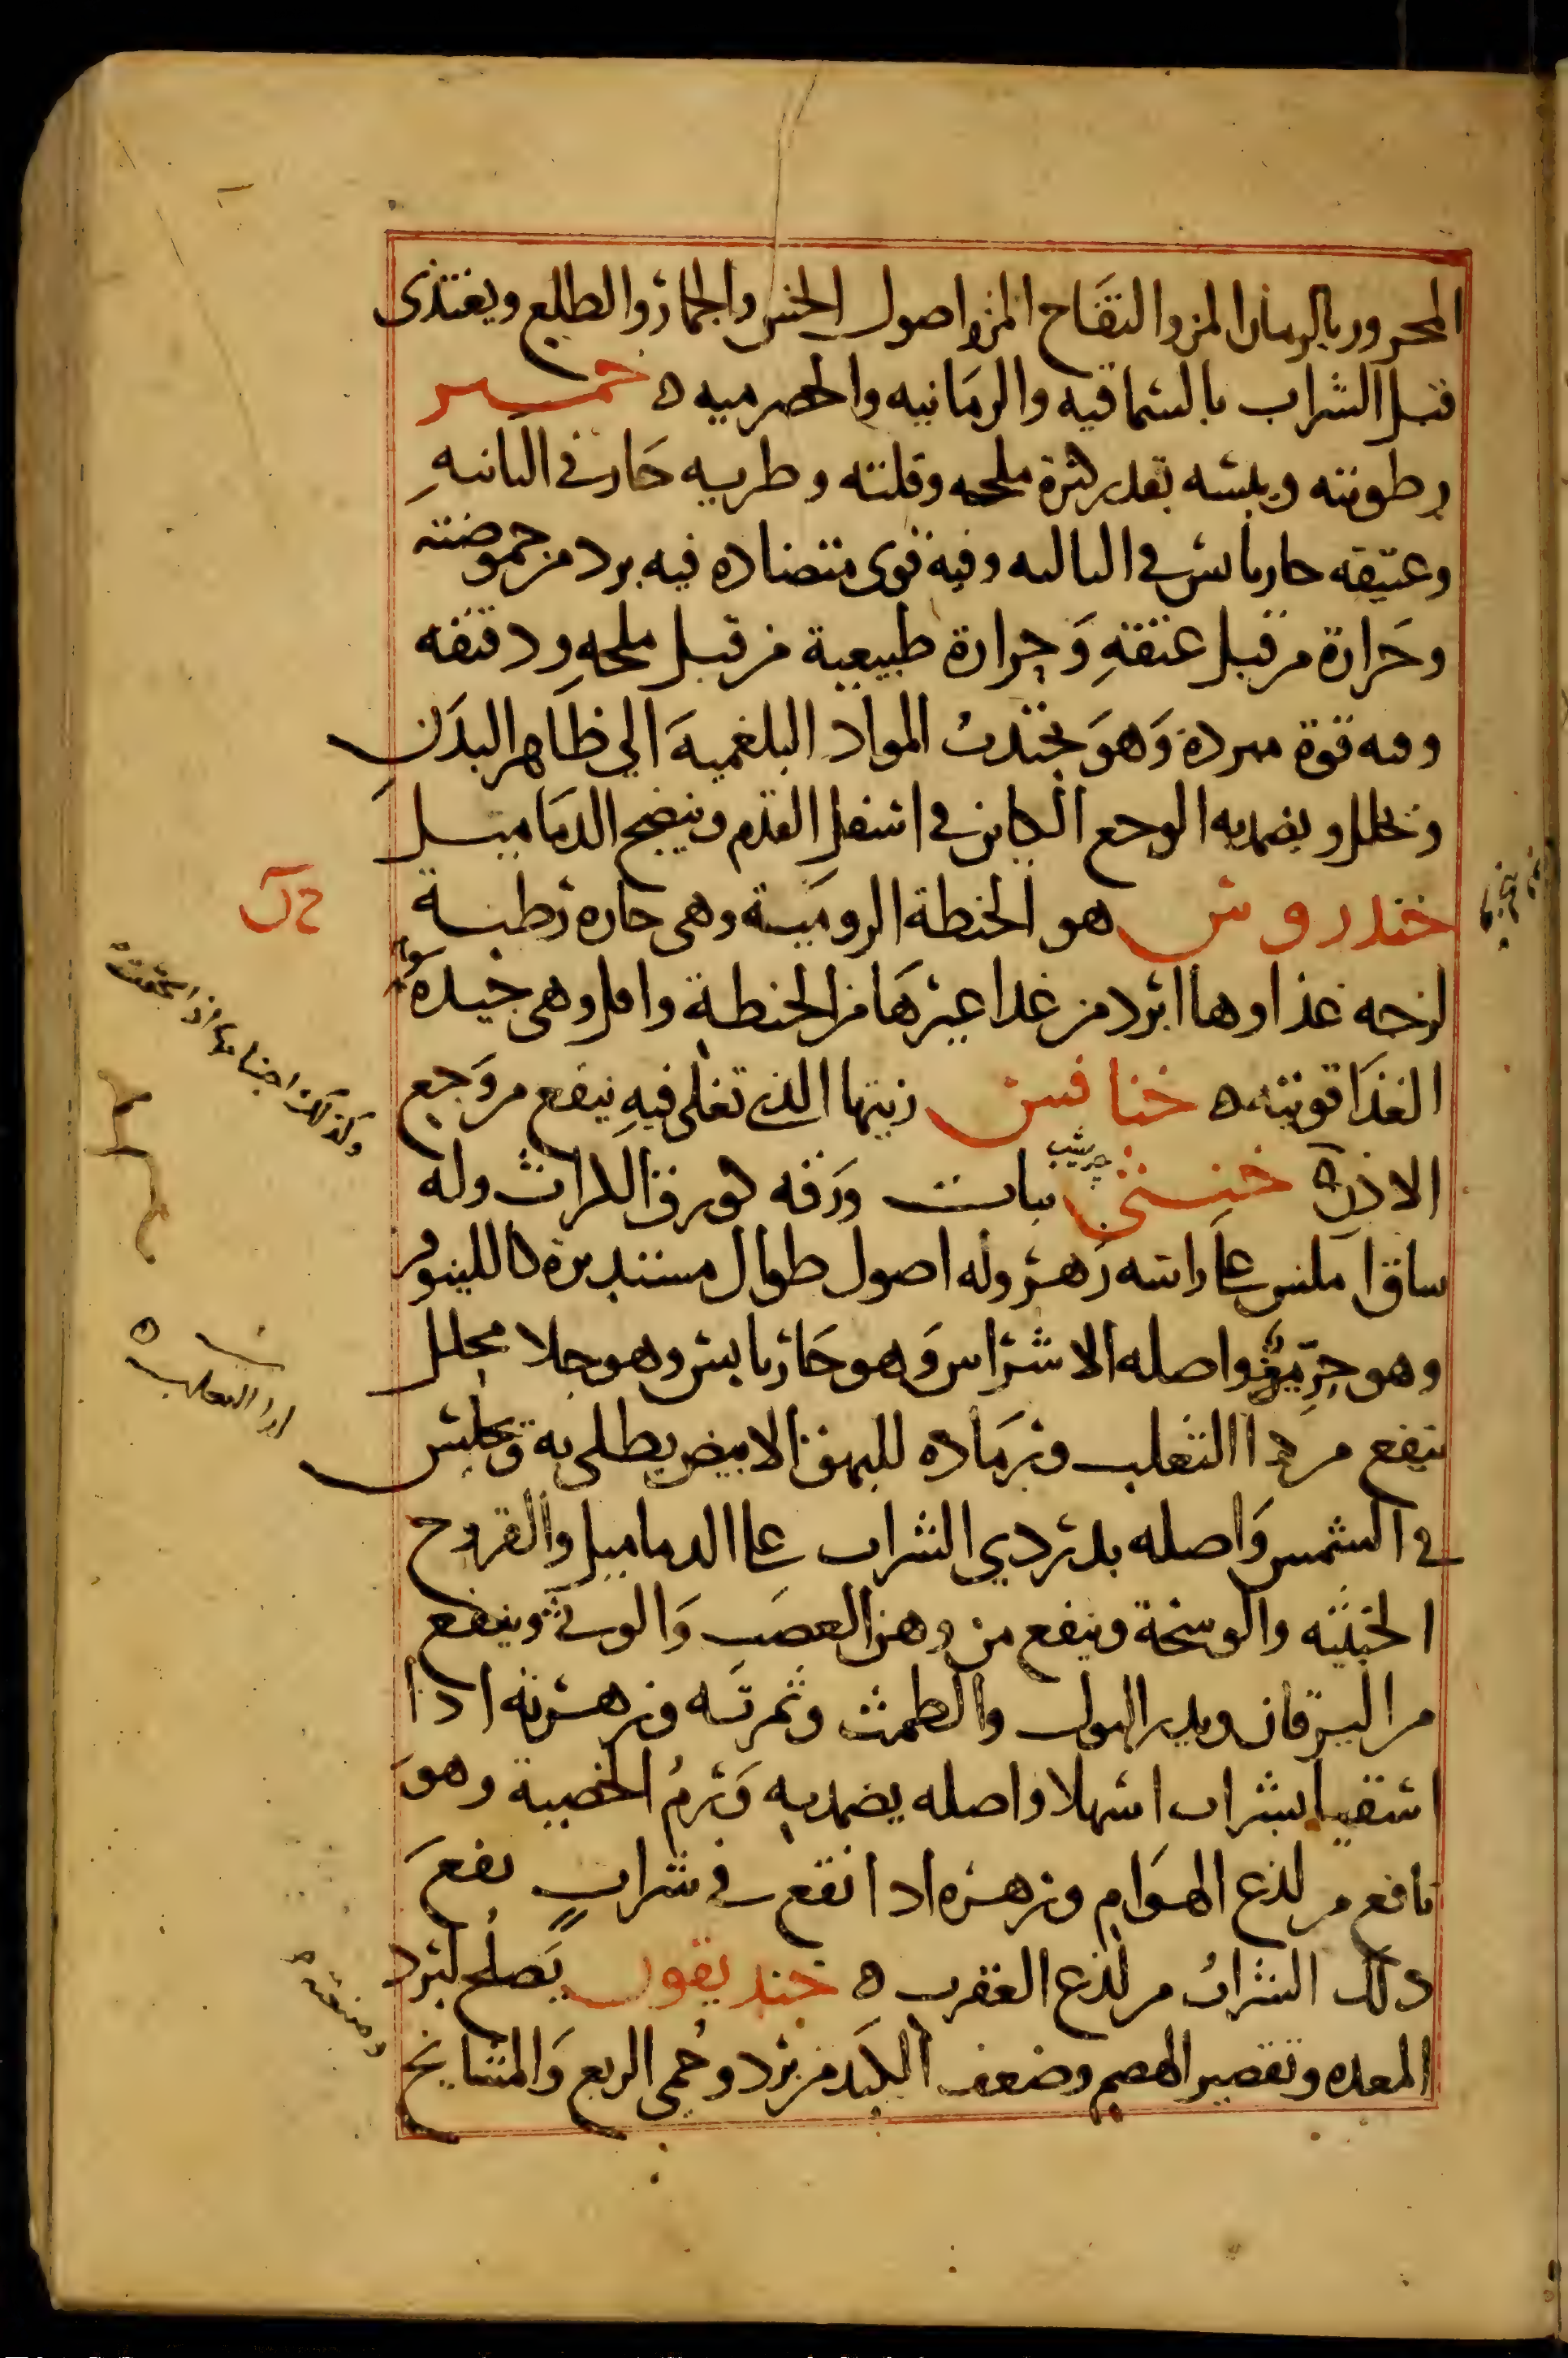 المحرور بالرمان المز والتفاح المز واصول الخس والجمار والطلع ويغتذى
قبل الشراب بالسماقيه والرمانيه والحصرميه ه خمير
رطوبته ويبسه بقدر كثرة ملحه وقلته وطريه حار فى الثانيه
وعتيقه حار يابس فى الثالثه وفيه قوى متضاده فيه برد من حموضته
وحرارة من قبل عتقه وحرارة طبيعية من قبل ملحه ودقيقه
وفيه قوة مبردة وهو يجتذب المواد البلغمية الي ظاهر البدن
ويحلل ويضمد به الوجع الكاين فى اسفل القدم وينضج الدماميل
خندروس هو الحنطة الرومية وهى حاره رطبة
لزجه غذاوها ابرد من غذا غيرها من الحنطة واقل وهى جيدة
الغذا قويته ه خنافس زيتها الذى تغلى فيه ينفع من وجع
الاذن ه خنثى نبات ورقه كورق الكراث وله
ساق املس على راسه زهر وله اصول طوال مستديرة كاللينوفر
وهو حريف واصله الاشراس وهو حار يابس وهو جلا محلل
ينفع من دا الثعلب ورماده للبهق الابيض يطلى به ويجلس
فى الشمس واصله بدردي الشراب على الدماميل والقروح
الخبيثه والوسخة وينفع من وهن العصب والوثى وينفع
من اليرقان ويدر البول والطمث وثمرته وزهرته اذا
اسقيا بشراب اسهلا واصله يضمد به ورم الخصية وهو
نافع من لدغ الهوام وزهره اذا نقع فى شراب نفع
ذلك الشراب من لدغ العقرب ه خنديقون يصلح لبرد
المعده وتقصير الهضم وضعف الكبد من برد وحمى الربع والمشايخ
وكذلك اجنا
دا الثعلب ه
ومنفعته